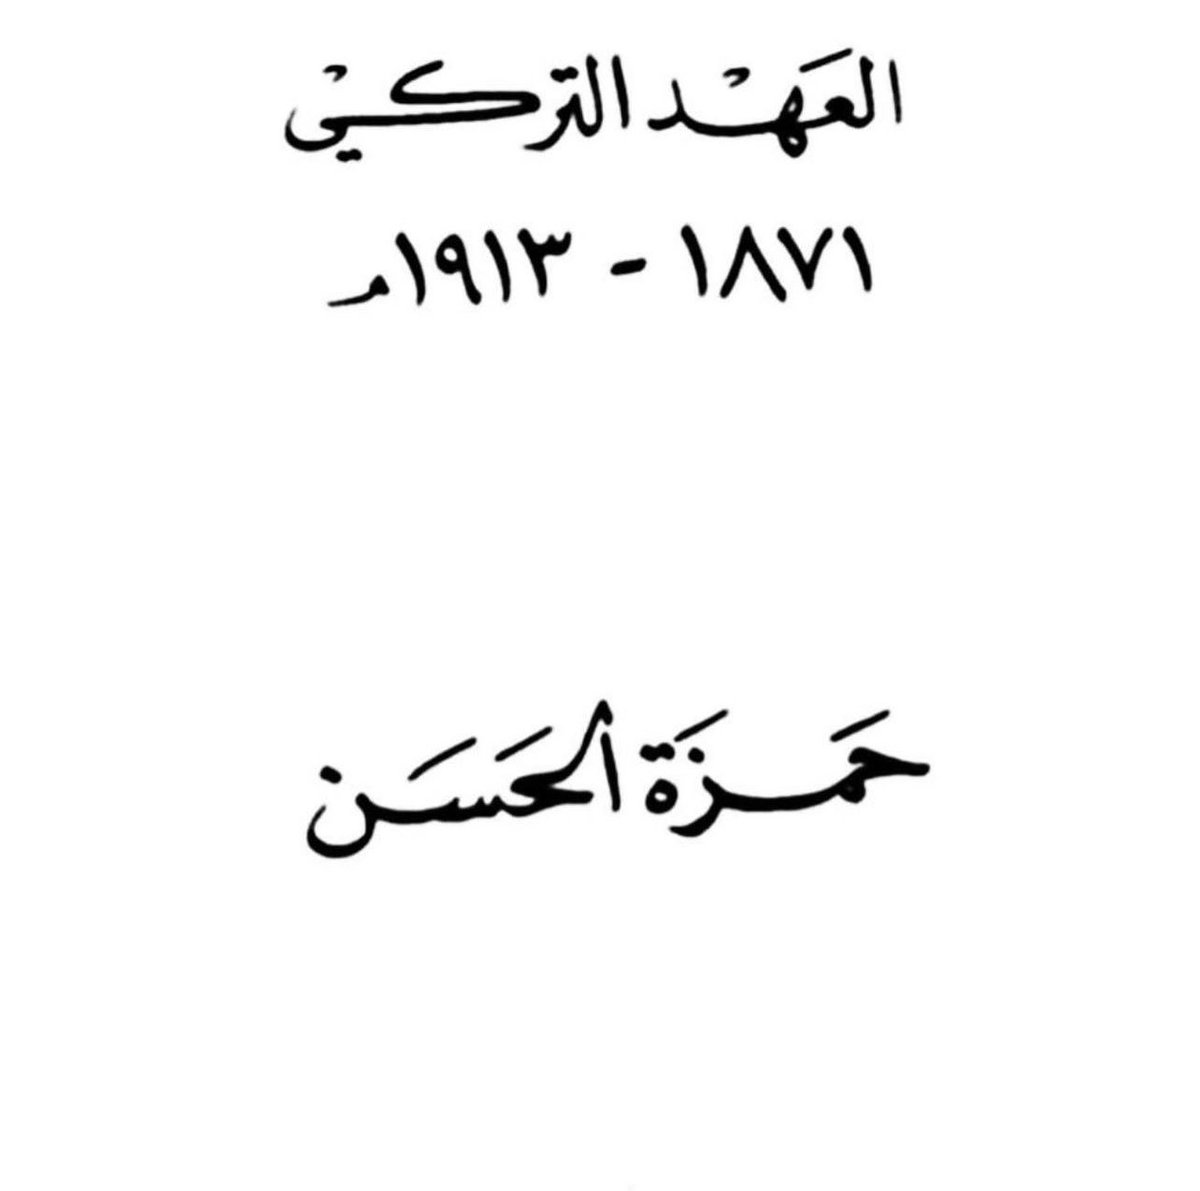 العَهْد التركيْ
١٨٧١ - ١٩١٣م
حَمزَة الحَسَن